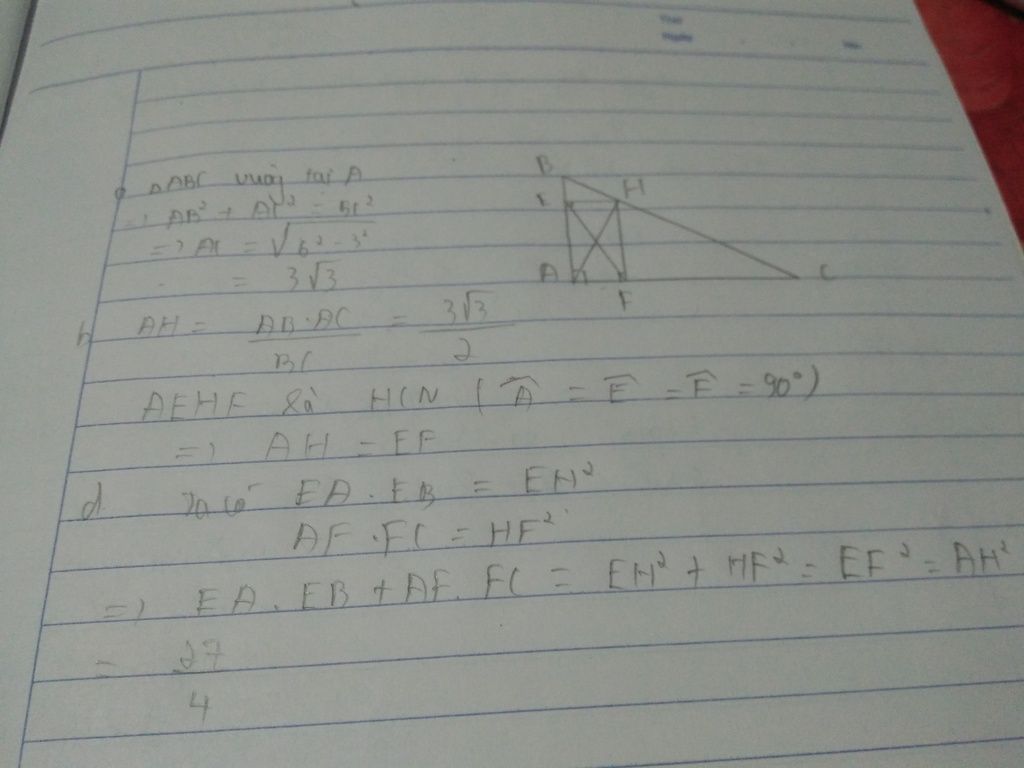 a ΔABC vuông tại A
=> AB² + AC² = BC²
=> AC = √6² - 3²
= 3√3
b AH = AB.AC / BC = 3√3 / 2
AEHF là HCN (Â = Ê = F̂ = 90°)
=> AH = EF
d Ta có EA . EB = EH²
AF . FC = HF²
=> EA . EB + AF . FC = EH² + HF² = EF² = AH²
= 27 / 4
B
H
E
A
F
C